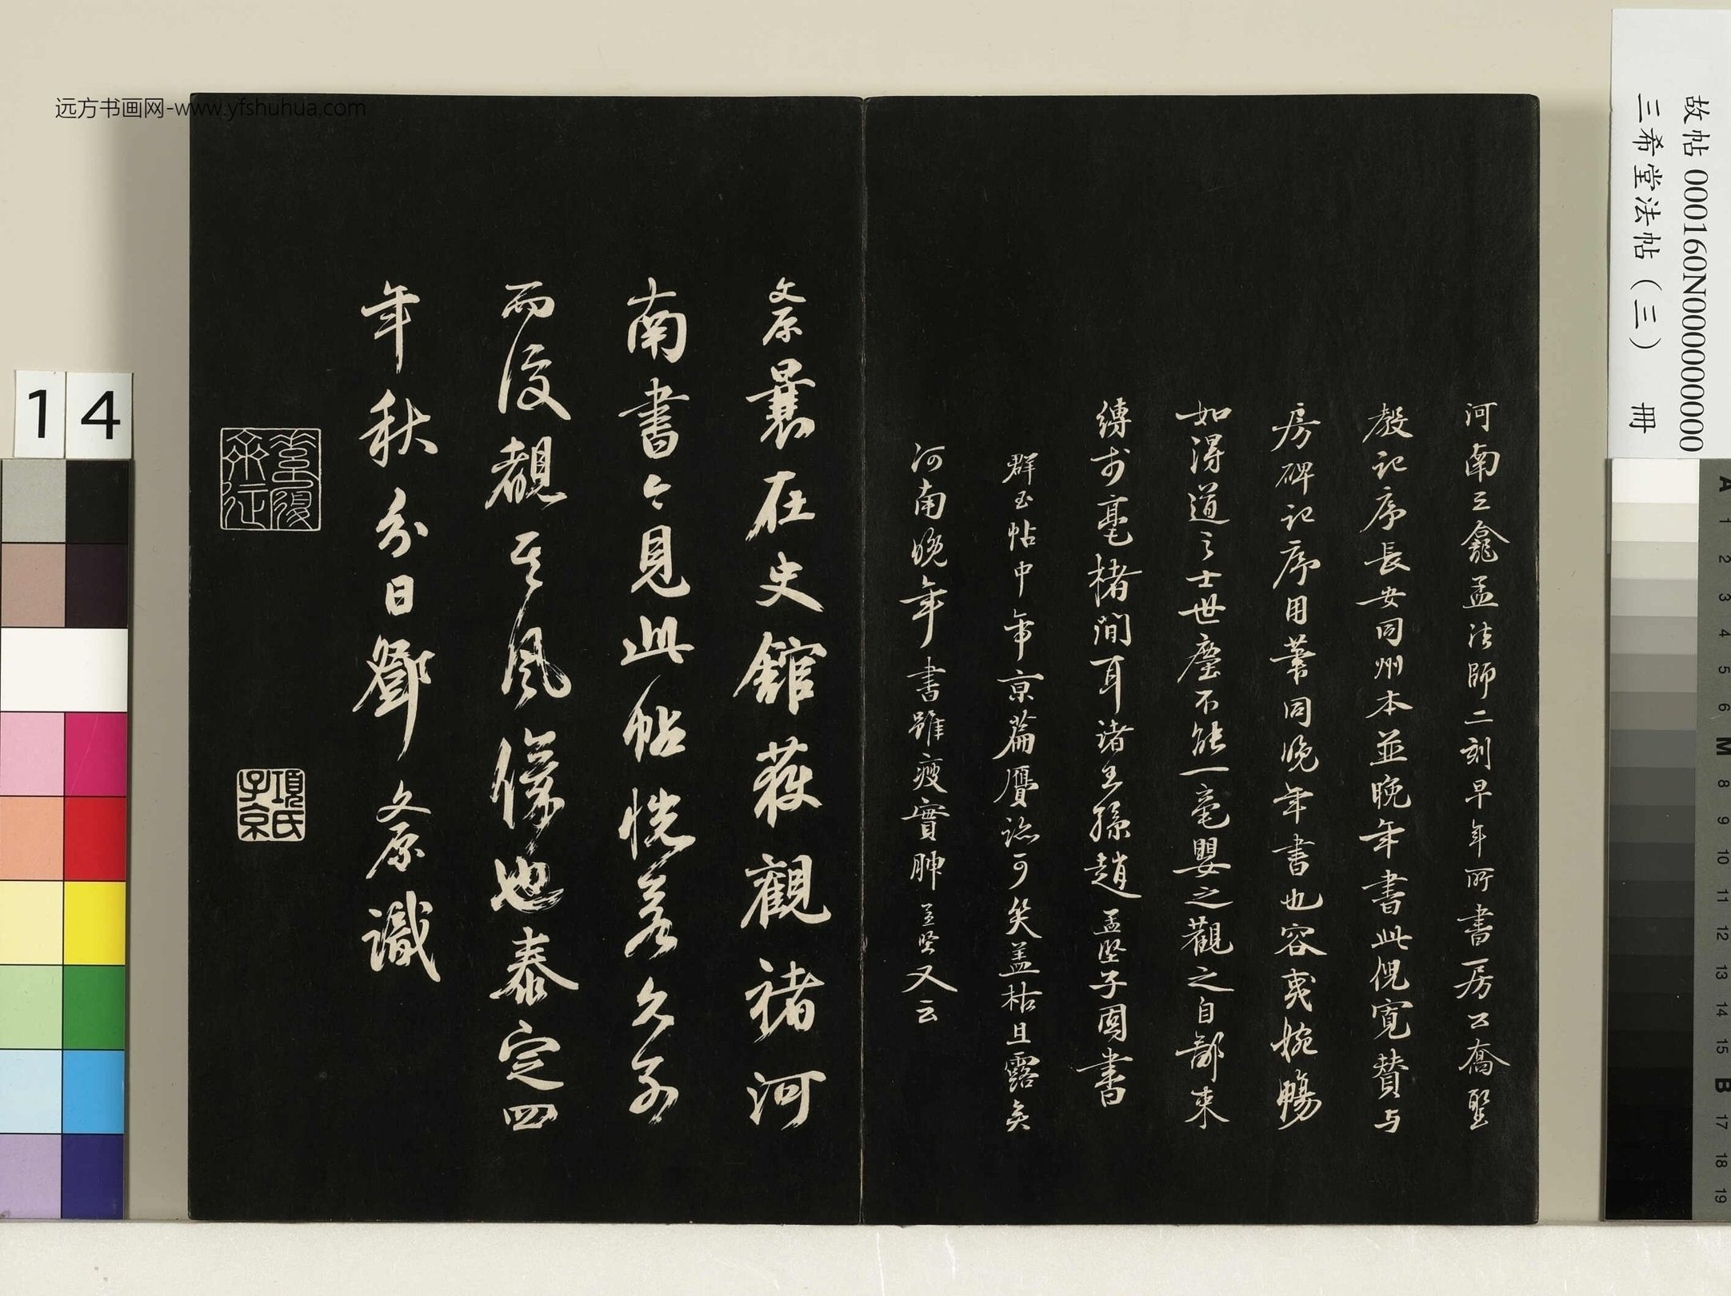 远方书画网-www.yfshuhua.com
故帖 000160N000000000
三希堂法帖（三） 冊
14
河南三龕孟法師二刻早年所書房公喬聖
教記序長安同州本並晚年書此倪寬贊与
房碑記序用筆同晚年書也容夷婉暢
如得道之士世塵不能一毫嬰之觀之自鄙束
縛於毫楮間耳諸王孫趙孟堅子固書
群玉帖中帝京篇贗跡可笑蓋枯且露矣
河南晚年書雖瘦實腴孟堅又云
文原曩在史館獲觀褚河
南書今見此帖恍若久別
而復覩其風儀也泰定四
年秋分日鄧文原識
項氏子京